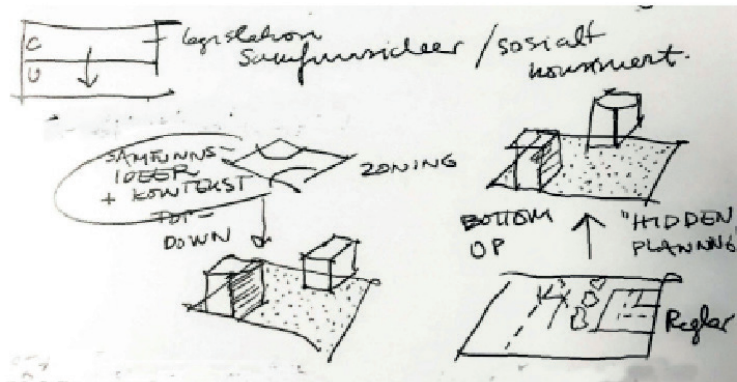 C
legislation
U
Samfunnsideer / sosialt
konstruert.
SAMFUNNS-
IDEER
+ KONTEKST
ZONING
TOP-
DOWN
BOTTOM
UP
"HIDDEN
PLANNNG"
Reglar